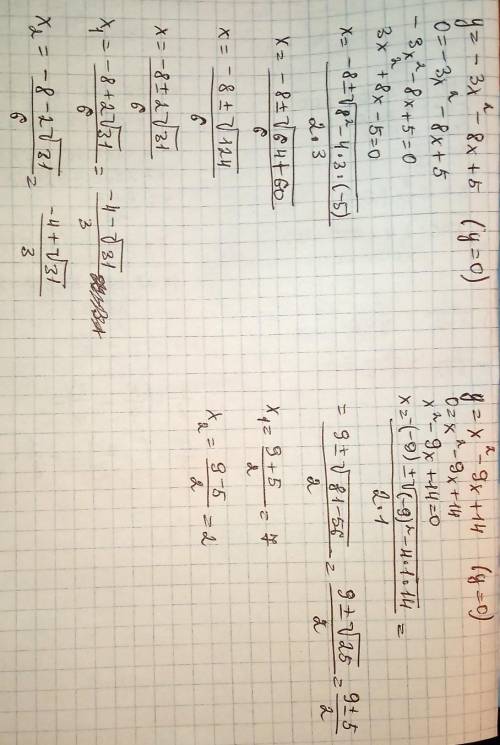 y = -3x² - 8x + 5 (y=0)
0 = -3x² - 8x + 5
-3x² - 8x + 5 = 0
3x² + 8x - 5 = 0
x = (-8 ± √(8² - 4·3·(-5))) / (2·3)
x = (-8 ± √(64+60)) / 6
x = (-8 ± √124) / 6
x = (-8 ± 2√31) / 6
x₁ = (-8 + 2√31) / 6 = (-4 - √31) / 3
x₂ = (-8 - 2√31) / 6 = (-4 + √31) / 3
y = x² - 9x + 14 (y=0)
0 = x² - 9x + 14
x² - 9x + 14 = 0
x = (-(-9) ± √((-9)² - 4·1·14)) / (2·1) =
= (9 ± √(81-56)) / 2 = (9 ± √25) / 2 = (9 ± 5) / 2
x₁ = (9+5) / 2 = 7
x₂ = (9-5) / 2 = 2